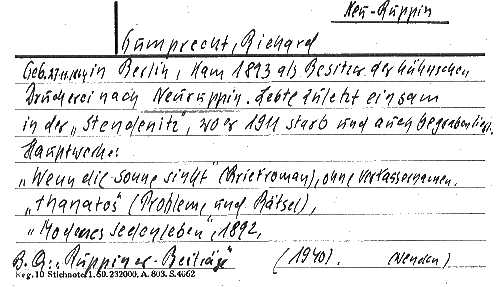 Neu-Ruppin
Gumprecht, Richard
Geb. in Berlin, kam 1893 als Besitzer der Kühnschen
Druckerei nach Neuruppin. Lebte zuletzt einsam
in der „Stendenitz“, wo er 1911 starb und auch begraben liegt.
Hauptwerke:
„Wenn die Sonne sinkt“ (Briefroman), ohne Verfassernamen,
„Thanatos“ (Probleme und Rätsel),
„Modernes Seelenleben“, 1892,
B. Q.: „Ruppiner-Beiträge“ (1940). (Wenden)
Reg. 10 Stichnote 1. 50. 232000. A. 803. S. 4662